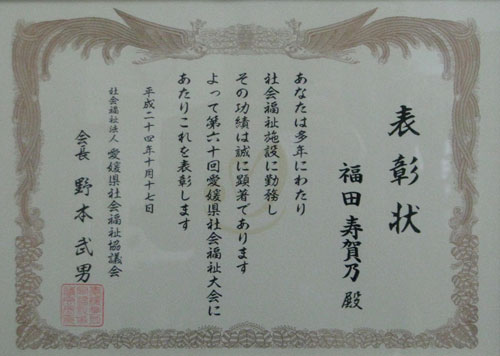 表彰状
福田寿賀乃 殿
あなたは多年にわたり
社会福祉施設に勤務し
その功績は誠に顕著であります
よって第六十回愛媛県社会福祉大会に
あたりこれを表彰します
平成二十四年十月十七日
社会福祉法人 愛媛県社会福祉協議会
会長 野本武男